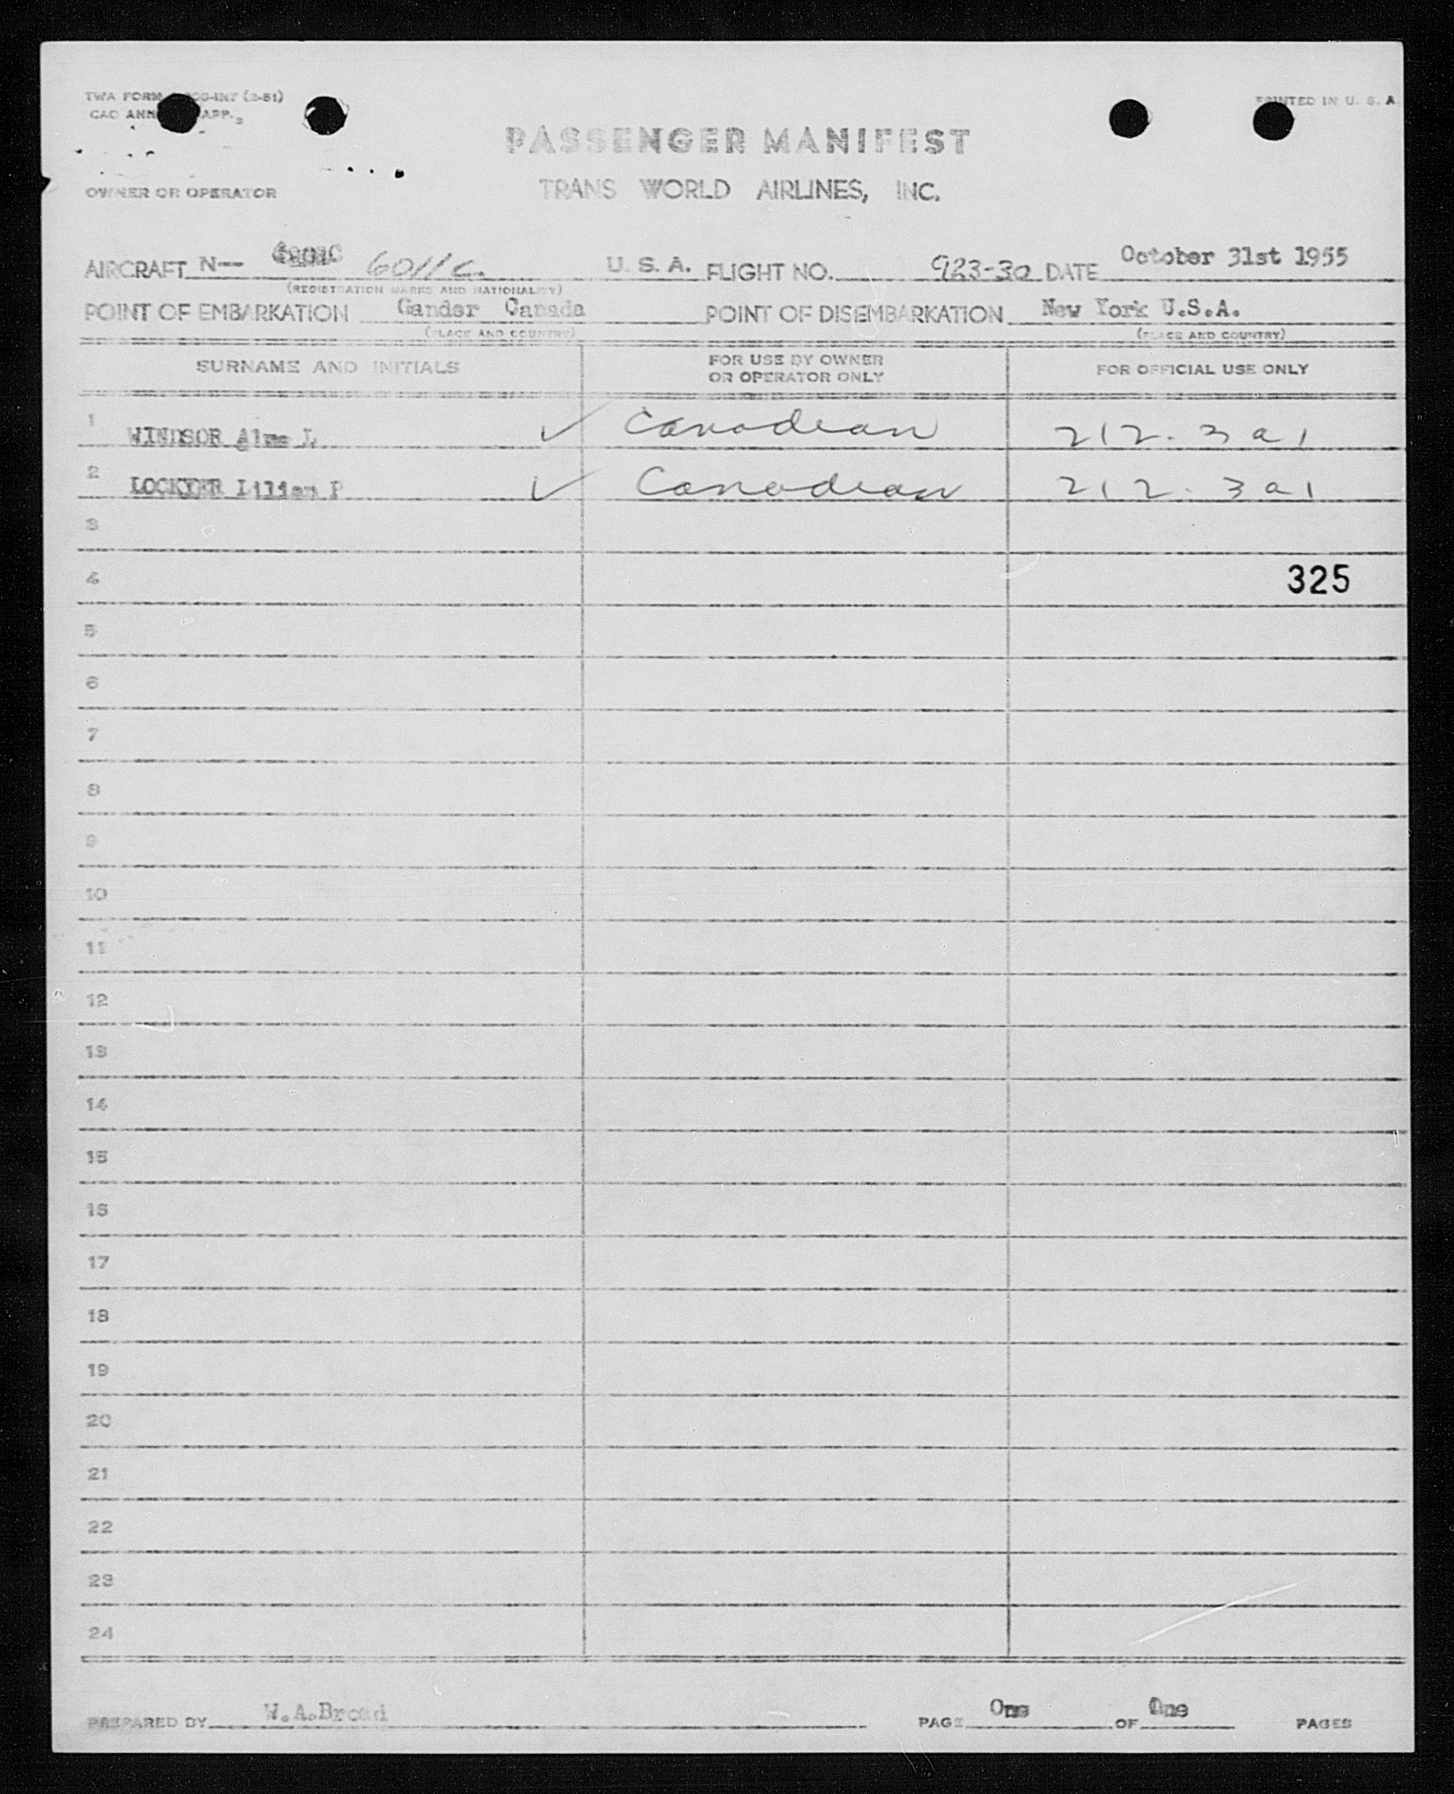 TWA FORM
PRINTED IN U. S. A.
PASSENGER MANIFEST
OWNER OR OPERATOR TRANS WORLD AIRLINES, INC.
AIRCRAFT N-- 6011C. U. S. A. FLIGHT NO. 923-30 DATE October 31st 1955
(REGISTRATION MARKS AND NATIONALITY)
POINT OF EMBARKATION Gander Canada POINT OF DISEMBARKATION New York U.S.A.
(PLACE AND COUNTRY) (PLACE AND COUNTRY)
SURNAME AND INITIALS FOR USE BY OWNER OR OPERATOR ONLY FOR OFFICIAL USE ONLY
1 WINDSOR Alma L ✓ Canadian 212.3a1
2 LOCKYER Lilian P ✓ Canadian 212.3a1
3
4 325
5
6
7
8
9
10
11
12
13
14
15
16
17
18
19
20
21
22
23
24
PREPARED BY W.A.Broad PAGE One OF One PAGES